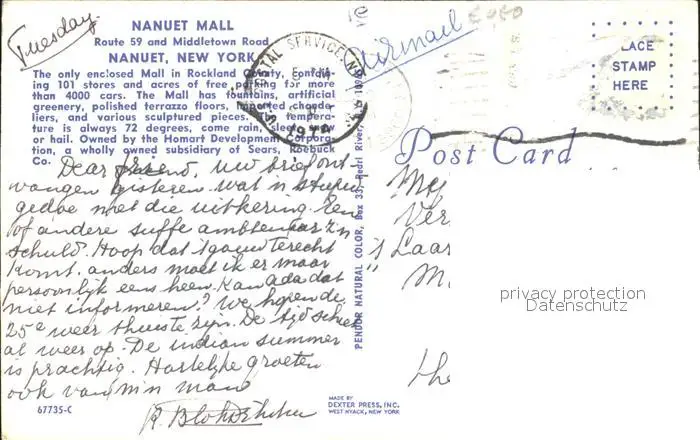 Tuesday
NANUET MALL
Route 59 and Middletown Road
NANUET, NEW YORK
The only enclosed Mall in Rockland County, containing
101 stores and acres of free parking for more
than 4000 cars. The Mall has fountains, artificial
greenery, polished terrazzo floors, imported chande-
liers, and various sculptured pieces. The tempera-
ture is always 72 degrees, come rain, sleet, snow
or hail. Owned by the Homart Development Corpora-
tion, a wholly owned subsidiary of Sears, Roebuck
Co.
Dear friend, uw brief ont-
vangen gisteren. wat 'n stupide
gedoe met die uitkering. Een
of andere suffe ambtenaar z'n
schuld. Hoop dat 't gauw terecht
komt, anders moet ik er maar
persoonlijk eens heen. Kan Ada dat
niet informeren? We hopen de
25e weer thuis te zijn. De tijd schiet
al weer op. De indian summer
is prachtig. Hartelijke groeten
ook van m'n man
67735-C
POSTAL SERVICE, N
Airmail
PLACE
STAMP
HERE
Post Card
PENDOR NATURAL COLOR, Box 33, Pearl River, N.Y. 109
't Laar
The
privacy protection
Datenschutz
MADE BY
DEXTER PRESS, INC.
WEST NYACK, NEW YORK